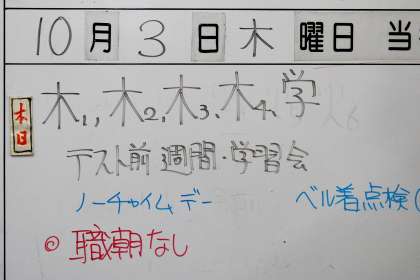 10月3日木曜日 当
木日 木1, 木2, 木3, 木4, 学
テスト前週間・学習会
ノーチャイムデー ベル着点検(
◎ 職朝なし